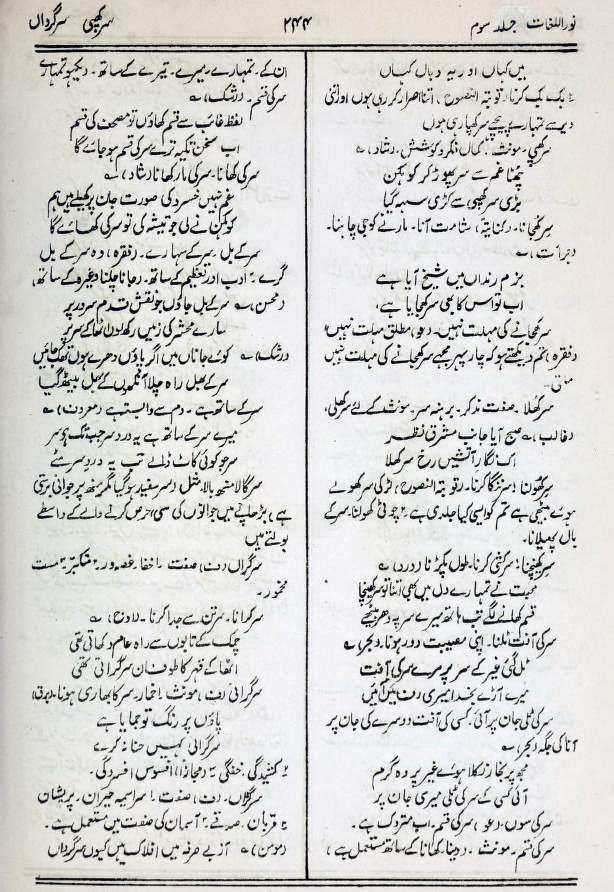 نوراللغات جلد سوم
۲۴۴
سرکھپی سرگرداں
میں کہاں اور یہ وبال کہاں
بک بک کرنا۔ (توبۃ النصوح) اتنا اصرار کر رہی ہوں اور اتنی
دیر سے تمہارے پیچھے سر کھپا رہی ہوں
سرکھپی۔ مونث۔ کمال فکر و کوشش۔ (رشاد) ؎
غم سے سر پھوڑ کر کوہکن
بڑی سرکھپی سے کڑی سہہ گیا
سر کھجانا۔ (کنایۃً) شامت آنا۔ مارنے کو جی چاہنا۔
(جرأت) ؎
بزم رنداں میں شیخ آیا ہے
اب تو اس کا بھی سر کھجایا ہے
سر کھجانے کی مہلت نہیں۔ (عو) مطلق مہلت نہیں۔
(فقرہ) تم دیکھتے ہو کہ چار پہر مجھے سر کھجانے کی مہلت نہیں
ملتی۔
سر کُھلا۔ صفت مذکر۔ برہنہ سر۔ مونث کے لئے سر کھلی۔
(غالب) ؎ صبح آیا جانب مشرق نظر
اک نگار آتشیں رخ سر کھلا
سر کھولنا۔ سر ننگا کرنا۔ (توبۃ النصوح) لڑکی سر کھولے
ہوئے بیٹھی ہے تم کو ایسی کیا جلدی ہے۔ ۲۔ چوٹی کھولنا۔ سر کے
بال پھیلانا۔
سر کھینچنا۔ سرکشی کرنا۔ طول پکڑنا (درد) ؎
محبت نے تمہارے دل میں بھی اتنا تو سر کھینچا
قسم کھانے لگے تب ہاتھ میرے سر پہ دھر بیٹھے
سر کی آفت ٹلنا۔ اپنی مصیبت دور ہونا۔ (بحر) ؎
ٹل گئی غیر کے سر پر مرے سر کی آفت
تیرے آڑے بخدا میری
سر کی ٹلی جان پر آئی۔ کسی کی آفت دوسرے کی جان پر
آنا کی جگہ (بحر) ؎
مجھ پر بخار نکلا ہوئے غیر پر وہ گرم
آئی کسی کے سر کی ٹلی میری جان پر
سر کی سوں۔ (عو) سر کی قسم۔ اب متروک ہے۔
سر کی قسم۔ مونث۔ (دینا، کھانا کے ساتھ مستعمل ہے)
ان کے۔ تمہارے۔ میرے۔ تیرے کے ساتھ۔ دیکھو تمہارے
سر کی قسم۔ (رشک) ؎
لفظ غائب سے قسم کھاؤں تو مصحف کی قسم
اب سخن تکیہ ترے سر کی قسم ہو جائے گا
سر کی کھانا۔ سر کی مار کھانا (رشاد) ؎
غم نہیں خسرو کی صورت جان پر کھیلے ہیں ہم
کوہکن نے لی جو تیشہ کی تو سر کی کھائے گا
سر کے بل۔ سر کے سہارے۔ (فقرہ) وہ سر کے بل
گرے۔ ادب اور تعظیم کے ساتھ۔ (جانا چلنا وغیرہ کے ساتھ)
(محسن) ؎ سر کے بل جاؤں جو نقش قدم سرور پر
سارے محشر کی زمیں رکھ لوں اٹھا کے سر پر
(رشک) ؎ کوئے جاناں میں اگر پاؤں دھرے ہوں تھک جائیں
سر کے بل راہ چلا آنکھوں کے بل بیٹھ گیا
سر کے ساتھ ہے۔ دم سے وابستہ ہے (معروف) ؎
میرے سر کے ساتھ ہے یہ درد سر جب تک ہو سر
سر جو کوئی کاٹ ڈالے تب یہ درد سر مٹے
سر گالا منھ بالا مثل (سر سفید ہو گیا مگر منھ پر جوانی برستی
ہے) بڑھاپے میں جوانوں کی سی حرص کرنے والے کے واسطے
بولتے ہیں
سرگراں (ف) صفت۔ خفا۔ غصہ ور۔ ۲۔ متکبر۔ ۳۔ مست
مخمور۔
سر گرانا۔ سر تن سے جدا کرنا۔ ؎
چمک کے ٹاپوں سے راہ عام دکھاتی تھی
اٹھا کے قہر کا طوفان سر گراتی تھی
سرگرانی (ف) مونث۔ خمار۔ سر کا بھاری ہونا۔ (برق)
پاؤں پر رنگ تو جمایا ہے
سرگرانی کہیں حنا نہ کرے
۲۔ کشیدگی۔ خفگی۔ ۳۔ (مجازاً) افسوس افسردگی۔
سرگرداں۔ (ف) صفت۔ سراسیمہ حیران۔ پریشان
۲۔ قربان۔ صدقے۔ ۳۔ آسمان کی صفت میں مستعمل ہے۔
(مومن) ؎ آ رہے صرفہ میں افلاک میں کیوں سرگرداں